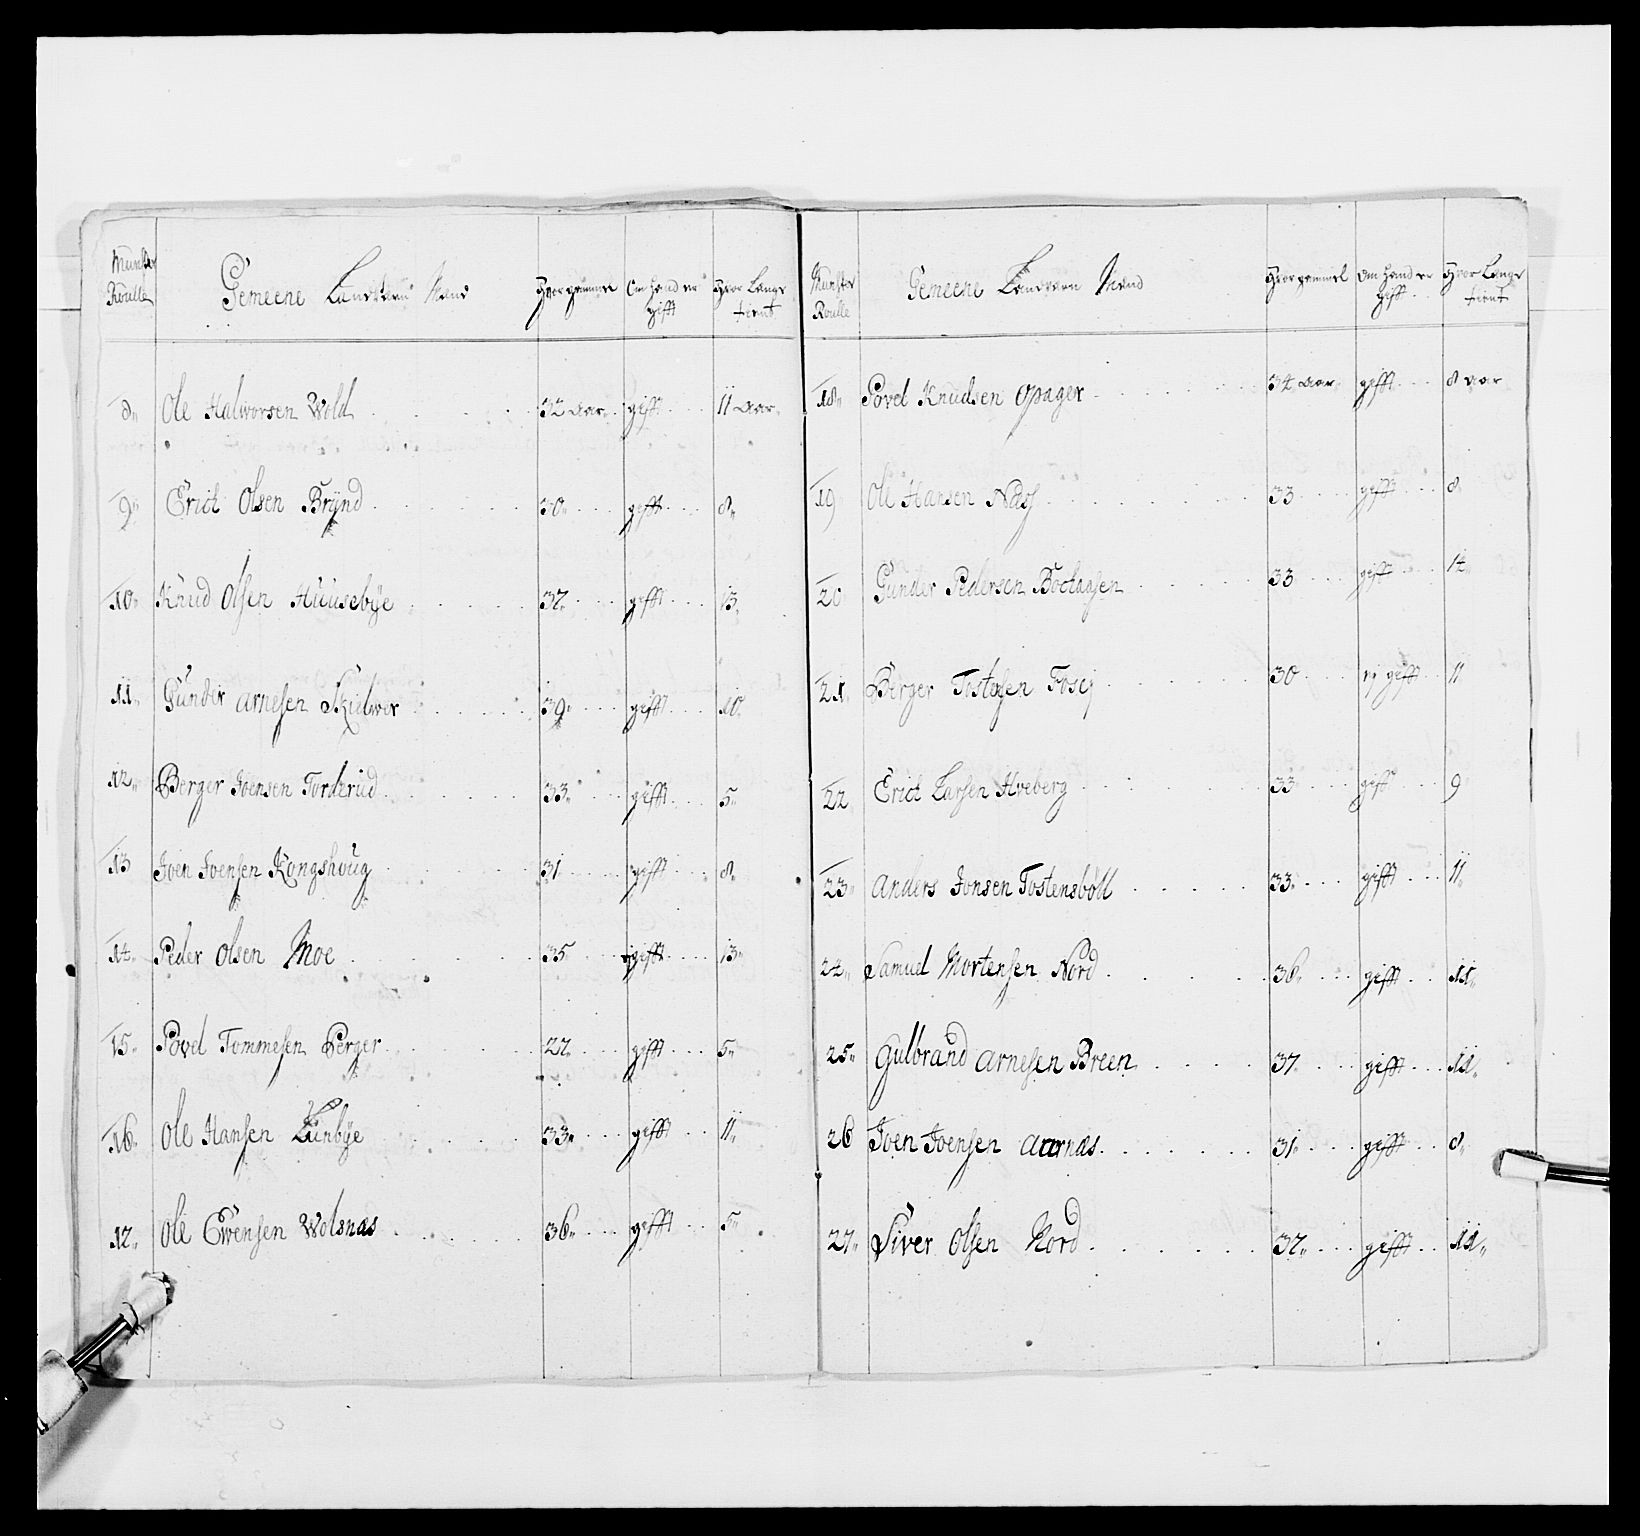 Munster Roulle | Gemeene Landværn Mænd | Hvor gammel | Om hand er gifft | Hvor Længe tient
8. Ole Halworsen Wold 32 aar. gifft 11 aar.
9. Erich Olsen Brÿnd 30. gifft 8.
10. Knud Olsen Huusebÿe 37. gifft 13.
11. Gunder Arnesen Skielwer 39. gifft 10.
12. Berger Joensen Torderud 33. gifft 5.
13 Joen Joensen Kongshoug 31 gifft 8.
14. Peder Olsen Moe 35 gifft 13.
15. Povel Tommesen Berger 27. gifft 5.
16. Ole Hansen Lunbÿe 33. gifft 11.
17. Ole Ewensen Wolsnæs 36. gifft 5.
Munster Roulle | Gemeene Landværn Mænd | Hvor gammel | Om hand er gifft | Hvor Længe tient
18. Povel Knudsen Opager 34 aar. gifft 8 aar
19 Ole Hansen Næss 33 gifft 8.
20 Gunder Pedersen 33 gifft 14.
21. Berger Tostesen 30 ej gifft 11
22 Erich Larsen Hveberg 33 gifft 9
23. Anders Jonsen Tostensböll 33. gifft 11.
24. Samuel Mortensen Nord 36. gifft 11.
25. Gulbrand Arnesen Breen 37. gifft 11.
26 Joen Joensen Aarnæs 31. gifft 8.
27. Siver Olsen Nord 37. gifft 11.